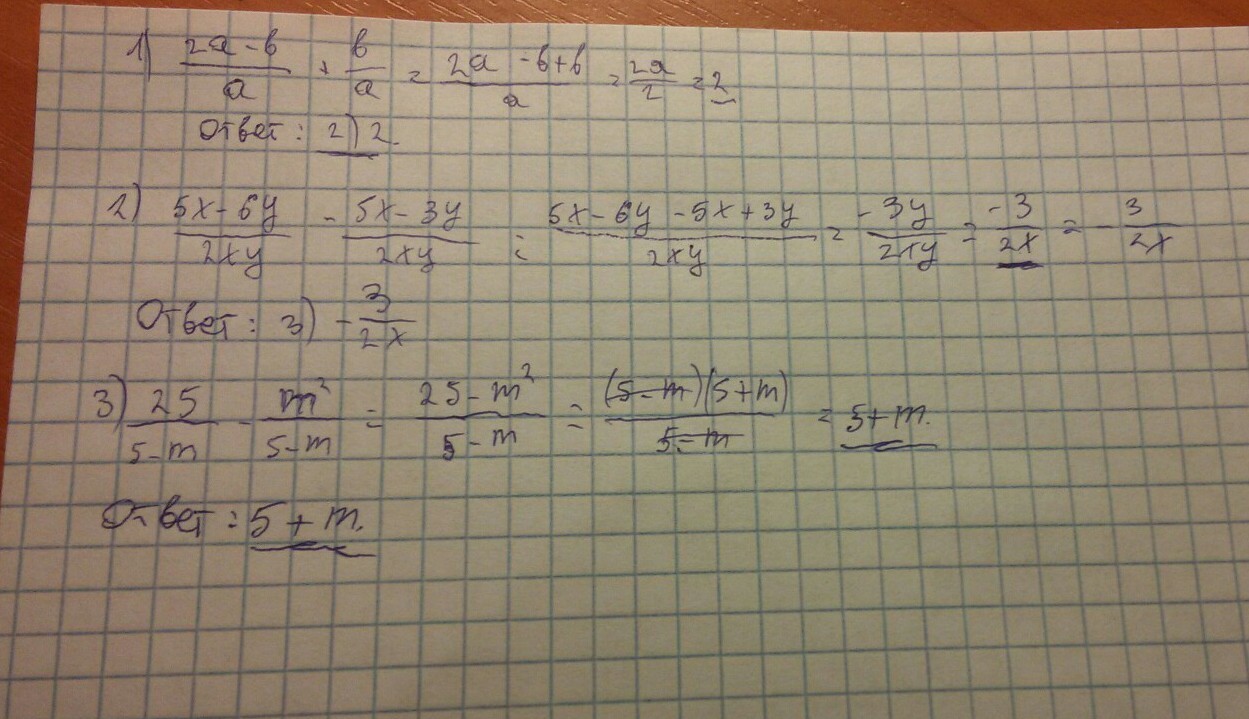 1) (2a-b)/a + b/a = (2a-b+b)/a = 2a/2 = 2
Ответ: 2) 2.
2) (5x-6y)/2xy - (5x-3y)/2xy = (5x-6y-5x+3y)/2xy = -3y/2xy = -3/2x = -3/2x
Ответ: 3) -3/2x
3) 25/(5-m) - m²/(5-m) = (25-m²)/(5-m) = (5-m)(5+m)/(5-m) = 5+m.
Ответ: 5+m.